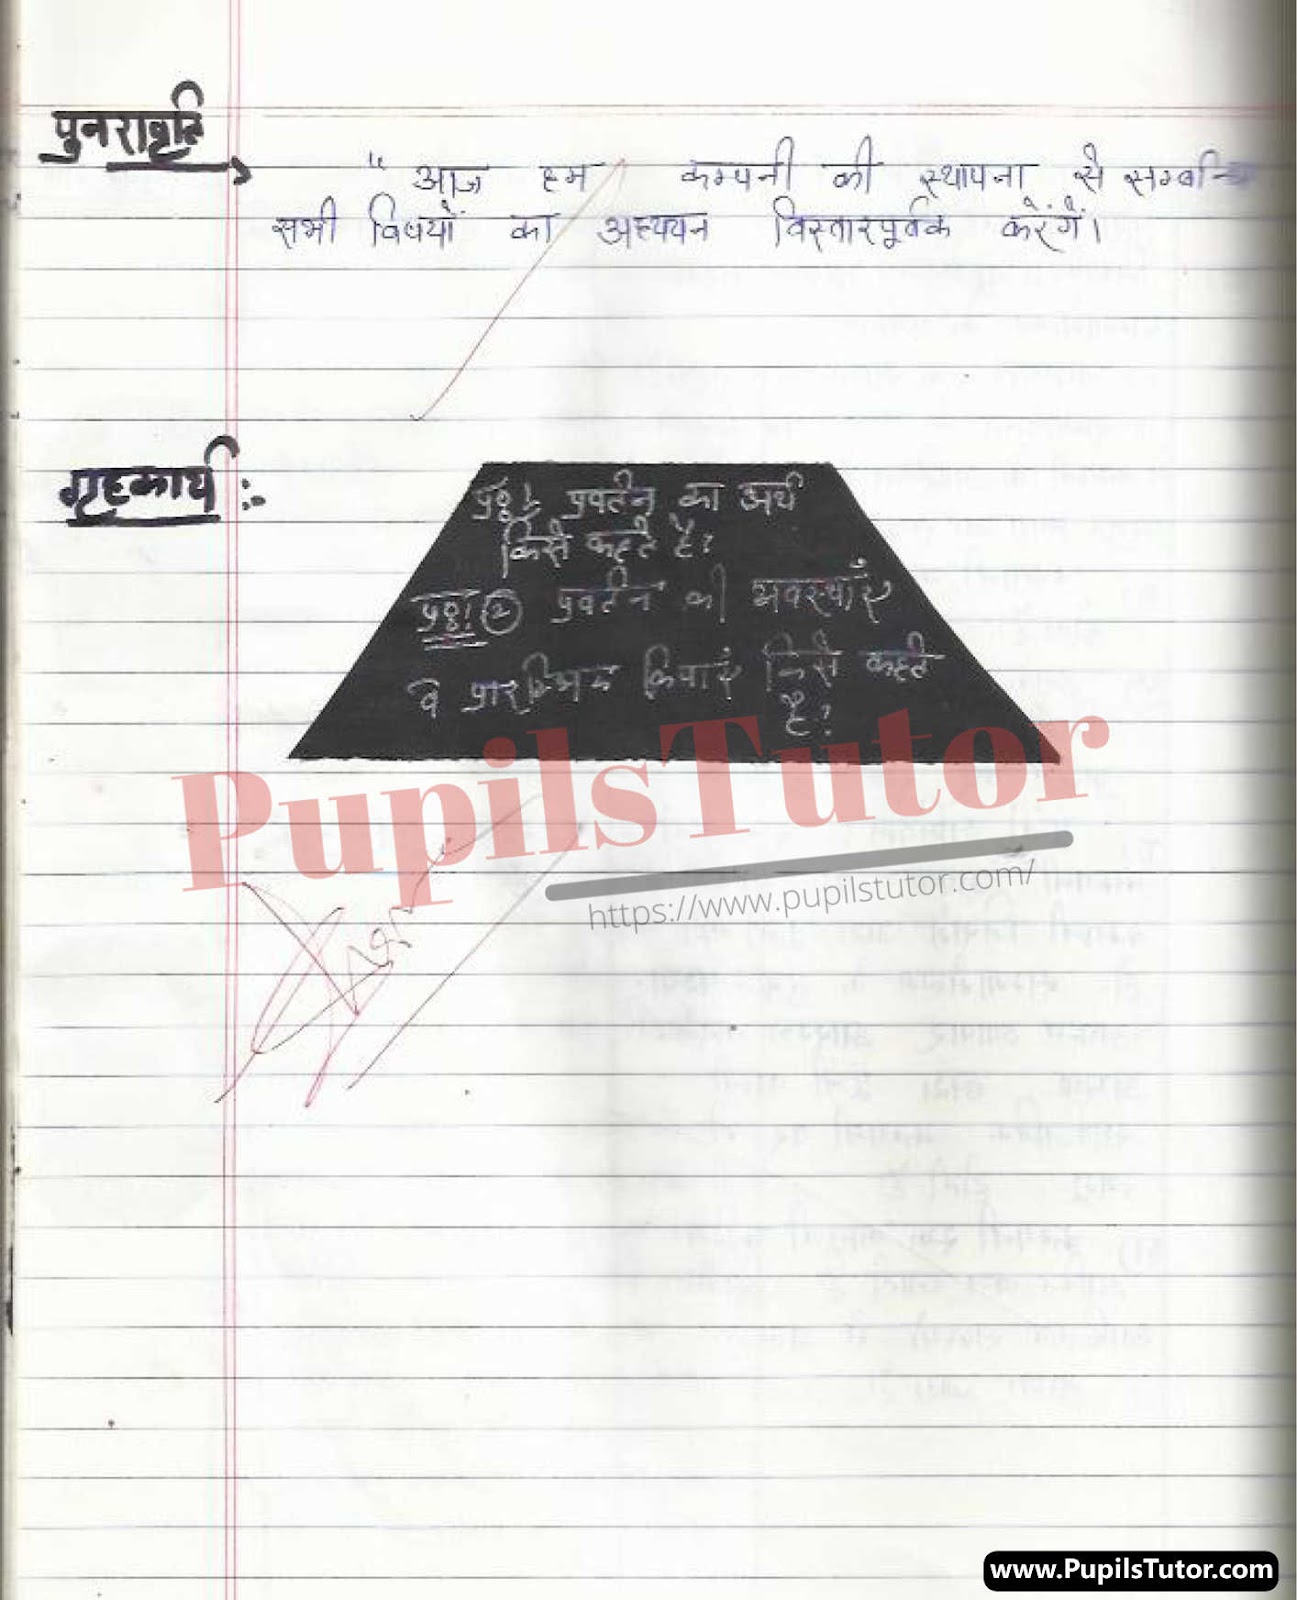 पुनरावृति
" आज हम कम्पनी की स्थापना से सम्बन्धित
सभी विषयों का अध्ययन विस्तारपूर्वक करेंगें।
गृहकार्य :-
प्रश्न 1 प्रवर्तन का अर्थ
किसे कहते है?
प्रश्न ② प्रवर्तन की अवस्थाएं
व प्रारम्भिक क्रियाएं किसे कहते
है?
PupilsTutor
https://www.pupilstutor.com/
www.PupilsTutor.com